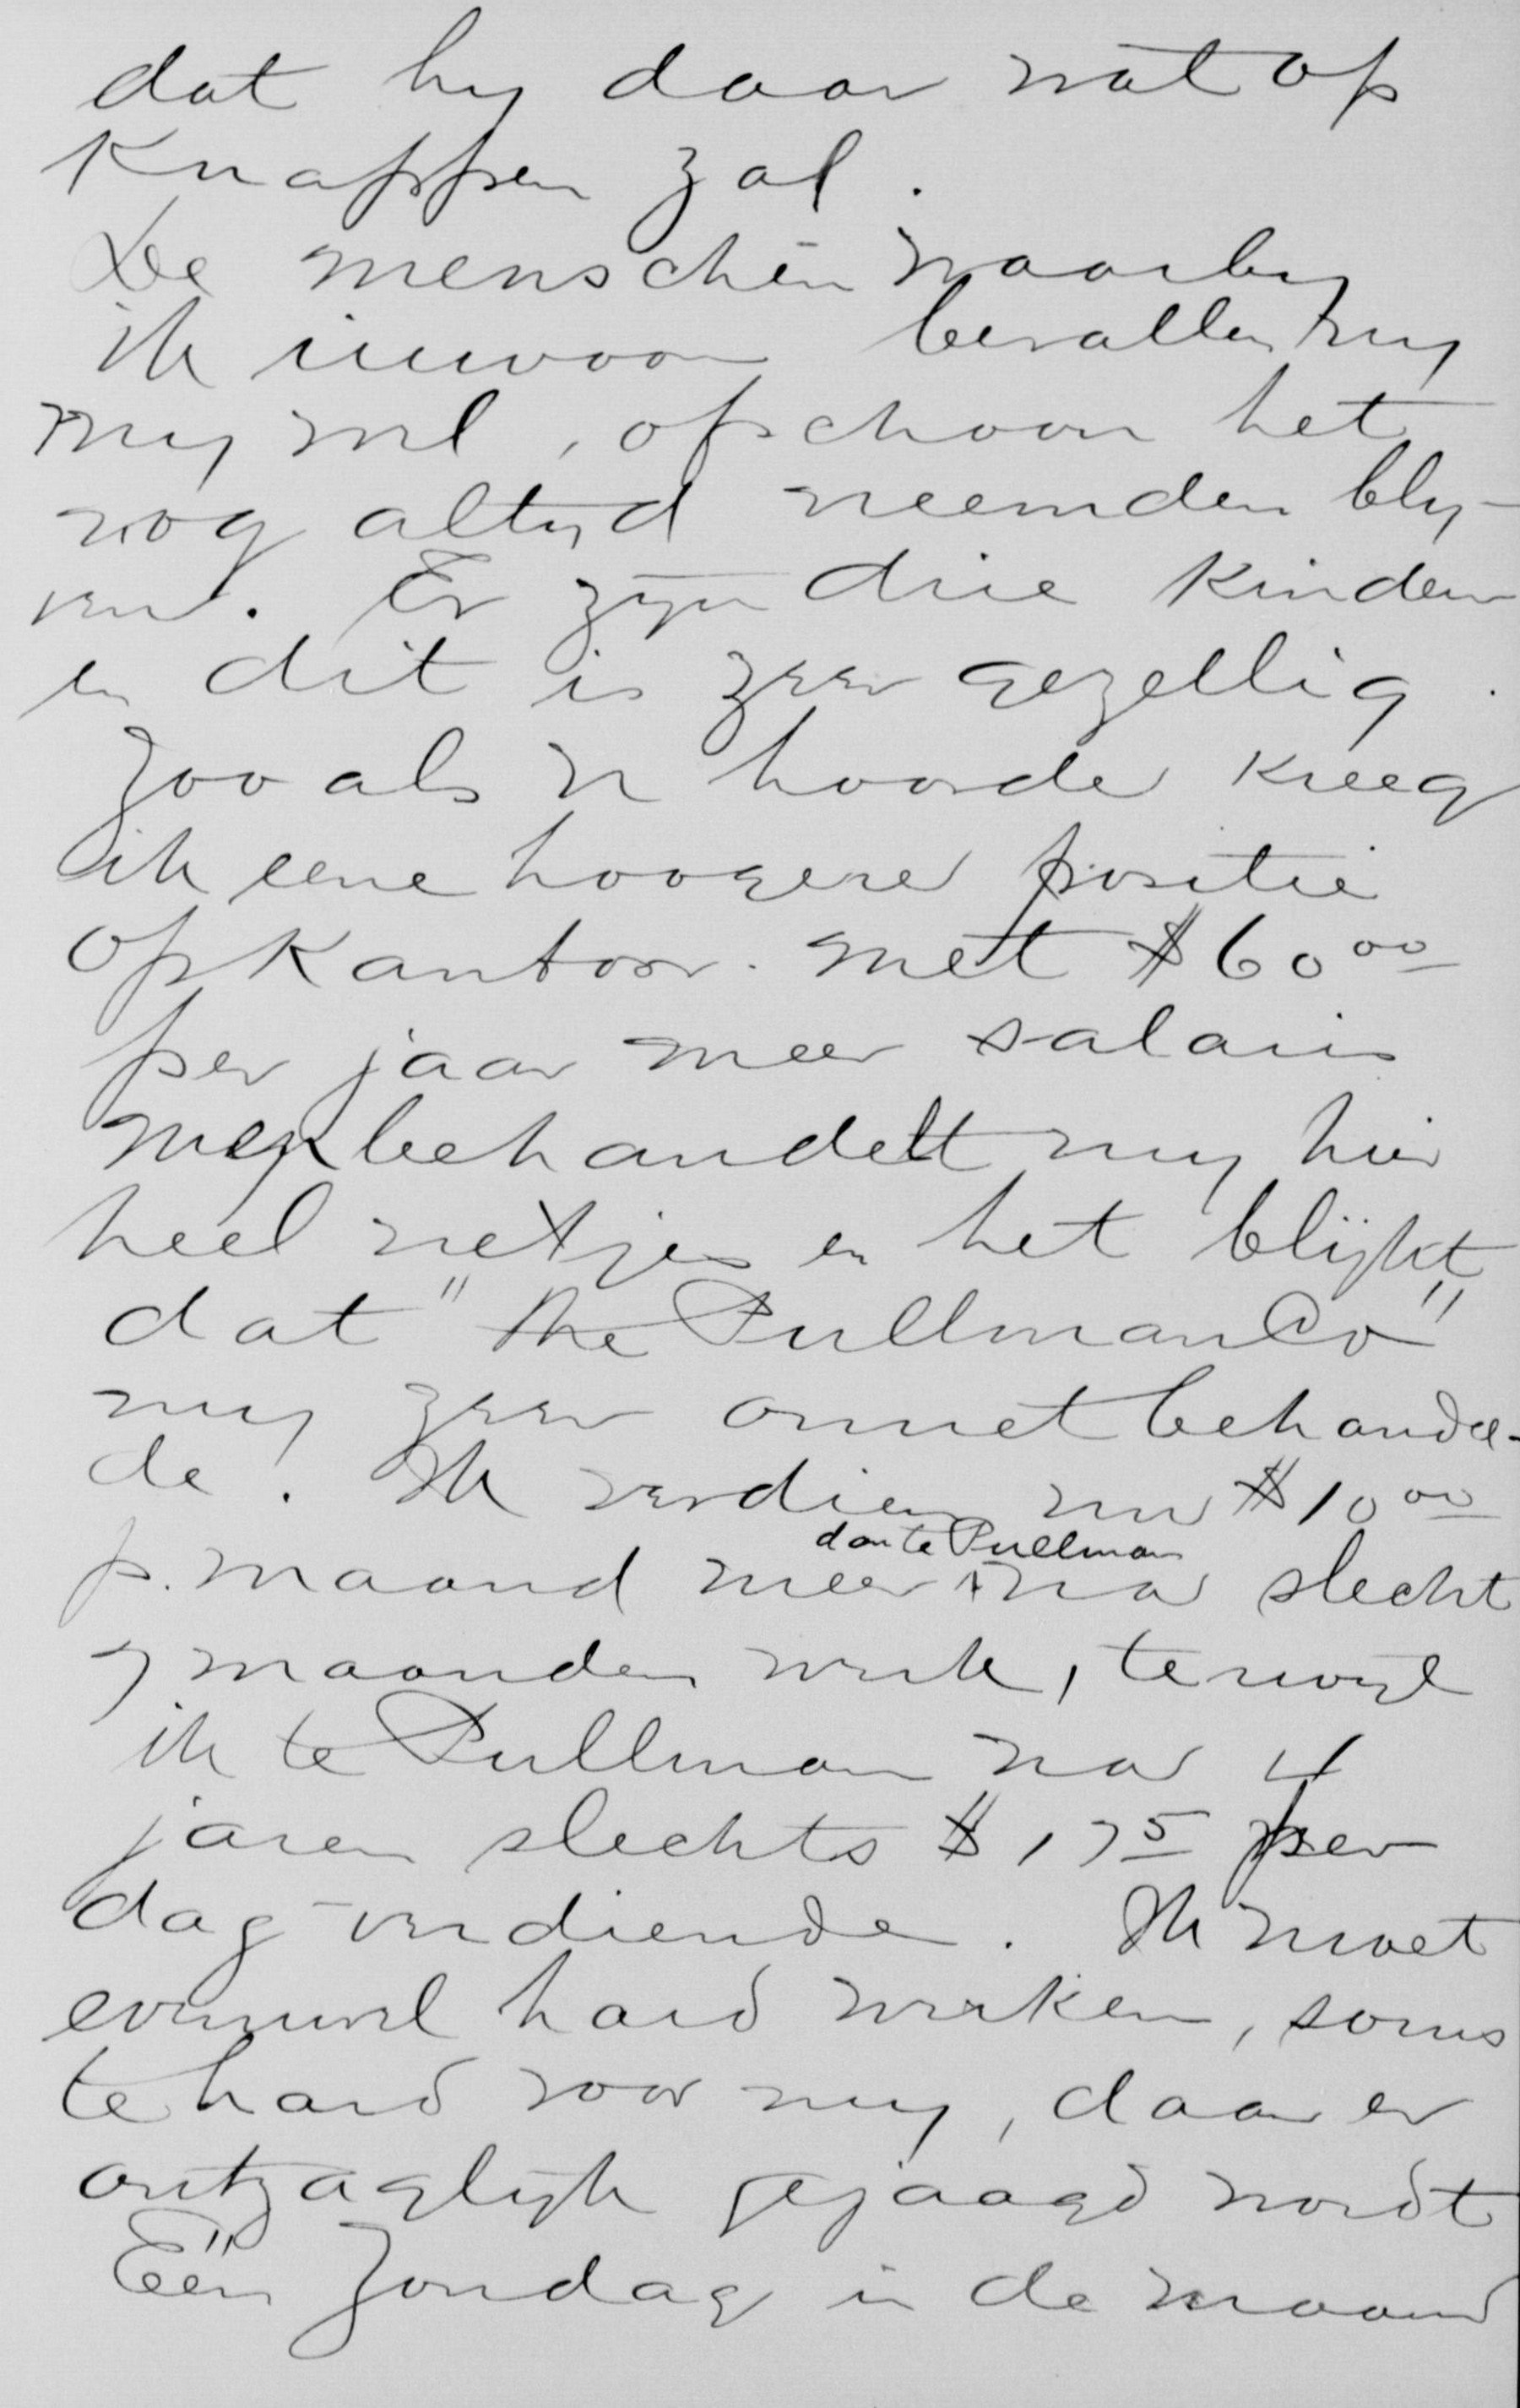 dat hy daar wat op
knappen zal.
De menschen waarby
ik inwoon bevallen my
my wel, ofschoon het
nog altyd vreemden bly-
ven. Er zyn drie kinderen
en dit is zeer gezellig.
Zooals U hoorde kreeg
ik eene hoogere positie
op kantoor. met $60 00
per jaar meer salaris
men behandelt my hier
heel netjes en het blijkt
dat "The Pullman Co"
my zeer onnet behandel-
de. Ik verdien nu $10 00
p. maand meer dan te Pullman na slecht
7 maanden werk, terwyl
ik te Pullman na 4
jaren slechts $1 75 per
dag verdiende. Ik moet
evenwel hard werken, soms
te hard voor my, daar er
ontzaglyk gejaagd wordt
Eën Zondag in de maand